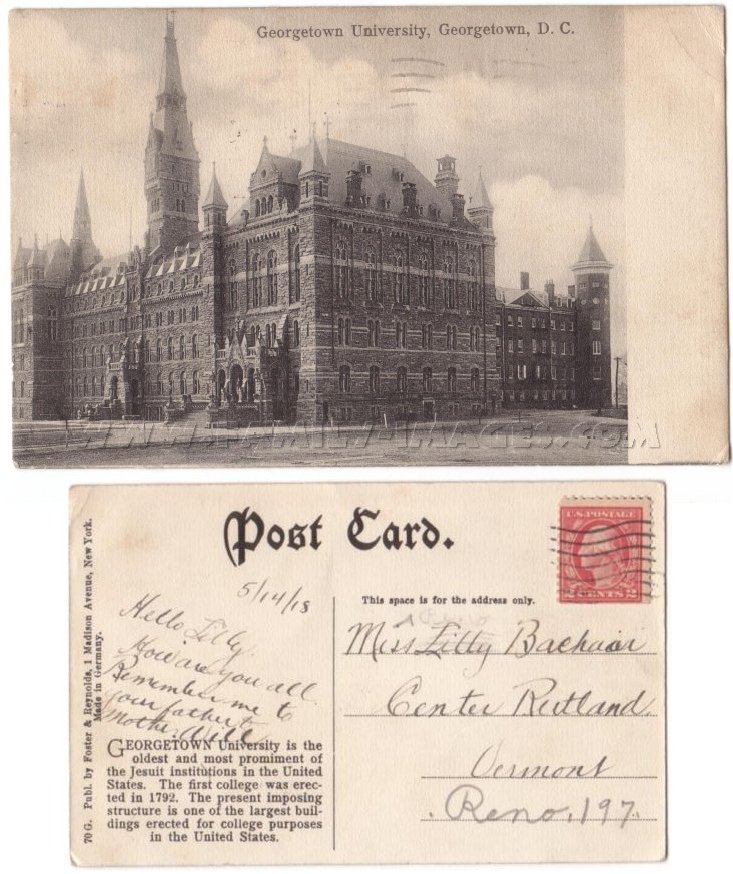 Georgetown University, Georgetown, D. C.
WWW.FAMILY-IMAGES.COM
Post Card.
U.S. POSTAGE
CENTS 2
5/14/18
This space is for the address only.
Hello Litty.
How are you all
Remember me to
your father &
Mother. Will
Miss Litty
Center Rutland.
Vermont
Reno, 197.
GEORGETOWN University is the
oldest and most promiment of
the Jesuit institutions in the United
States. The first college was erec-
ted in 1792. The present imposing
structure is one of the largest buil-
dings erected for college purposes
in the United States.
70 G. Publ. by Foster & Reynolds, 1 Madison Avenue, New York.
Made in Germany.